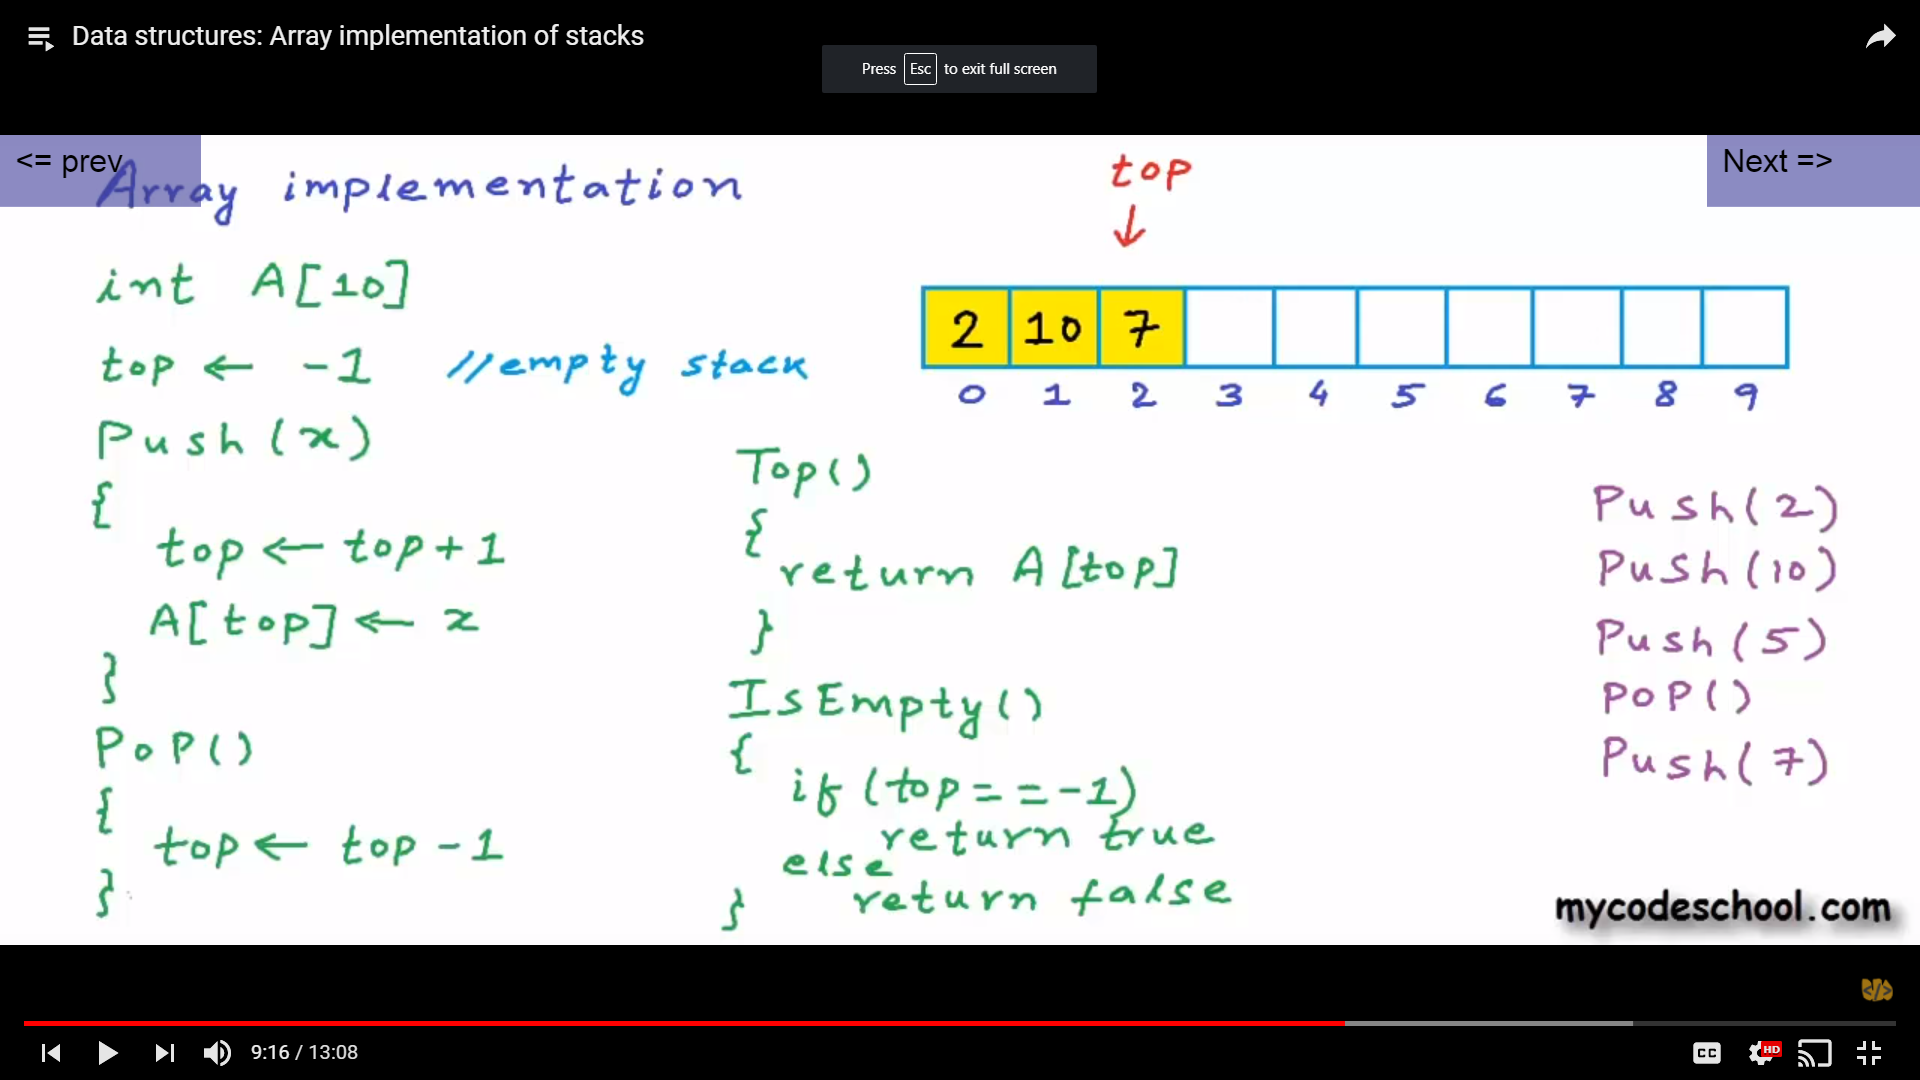 Data structures: Array implementation of stacks
Press Esc to exit full screen
<= prev
Next =>
Array implementation
int A[10]
top ← -1 //empty stack
Push(x)
{
top ← top+1
A[top] ← x
}
PoP()
{
top ← top -1
}
top
↓
2 10 7
0 1 2 3 4 5 6 7 8 9
Top()
{
return A[top]
}
IsEmpty()
{
if (top = = -1)
return true
else
return false
}
Push(2)
Push(10)
Push(5)
PoP()
Push(7)
mycodeschool.com
</>
9:16 / 13:08
CC
HD